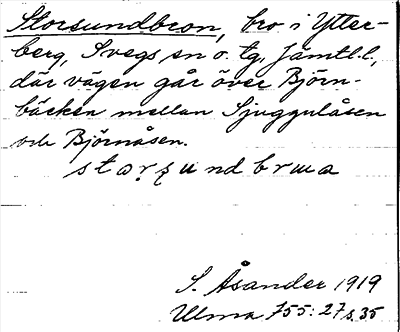 Storsundbron, bro i Ytter-
berg, Svegs sn o. tg, Jämtl.l.,
där vägen går över Björn-
bäcken mellan Sjuggulåsen
och Björnåsen.
storsundbrua
S. Åsander 1919
Ulma 755:27 s.35